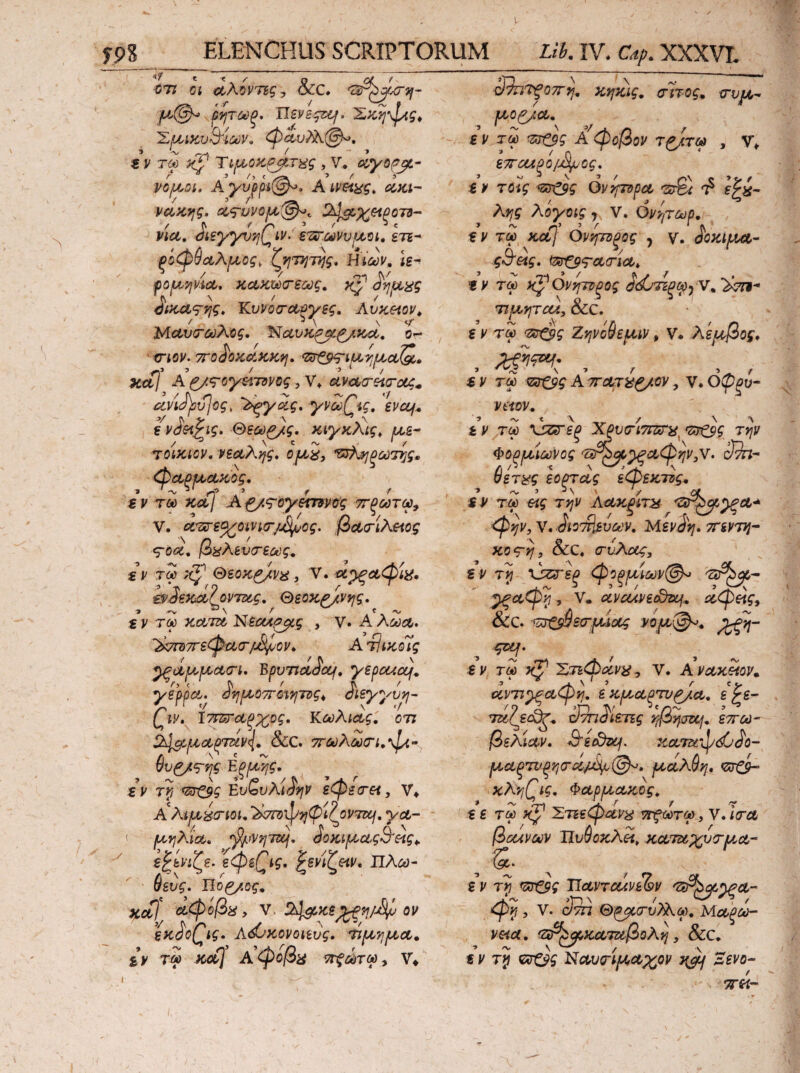 598 ELENCHUS SCRIPTORUM Lib. IV. Cap. XXXVI.
ὅτι οἱ ἁλόντες, &c. παράσημ-
μος ῥήτωρ. Πενέσται. Σκῆψις.
Σμικυθίων. φαῦλος.
ἐν τῷ κτ Τιμοκράτους, V. ἀγορα-
νόμοι. Ἀγύρριος. Αἰνείους. ἀκι-
νάκης. ἀστυνόμος. Διαχειροτο-
νία. διεγγύησιν. ἐπώνυμοι. ἑτε-
ρόφθαλμος. ζητητής. Ηἰών. ἱε-
ρομηνία. κακώσεως. κτ δήμους
δικαστής. Κυνόσαργες. Λύκειον.
Μαύσωλος. Ναυκραρικά. ὅ-
σιον. ποδοκάκκη. προστιμήματα.
κατ Ἀριστογείτονος, V. ἀνασείσας.
ἀνίδρυτος. Ἀργάς. γνῶσις. ἕναι.
ἔνδειξις. Θεωρίς. κιγκλίς. με-
τοίκιον. νεαλής. ὁμοῦ. πληρωτής.
φαρμακός.
ἐν τῷ κατ Ἀριστογείτονος πρώτῳ,
V. ἀπεσχοινισμένος. βασίλειος
στοά. βουλεύσεως.
ἐν τῷ κτ Θεοκρίνου, V. ἀγραφίου.
ἐνδεκάζοντας. Θεοκρίνης.
ἐν τῷ κατὰ Νεαίρας, V. Ἁλῶα.
Ἀποπεφασμένον. Ἀττικοῖς
γράμμασι. Βρυτίδαι. γεραιαί.
γέρρα. δημοποίητος. διεγγύη-
σιν. Ἵππαρχος. Κωλιάς. ὅτι
Διαμαρτάνει. &c. πωλῶσι. ψι-
θυριστὴς Ἑρμῆς.
ἐν τῇ πρὸς Εὐβουλίδην ἐφέσει, V.
Ἁλιμούσιοι. Ἀποψηφίζονται. γα-
μηλία. γεννῆται. δοκιμασθείς.
ἐξένιζε. ἔφεσις. ξενίζειν. Πλω-
θεύς. Πόριος.
κατ ἀφόβου, V. Διακεχρημένον
ἔκδοσις. Λευκονοιεύς. τίμημα.
ἐν τῷ κατ Ἀφόβου πρώτῳ, V.
ἐπιτροπή. κηκίς. σῖτος. συμ-
μορία.
ἐν τῷ πρὸς Ἄφοβον τρίτῳ, V.
ἐπαιρόμενος.
ἐν τοῖς πρὸς Ὀνήτορα περὶ τ ἐξού-
λης λόγοις, V. Ὀνήτωρ.
ἐν τῷ κατ Ὀνήτορος, V. δοκιμα-
σθείς. προστασία.
ἐν τῷ κτ Ὀνήτορος δευτέρῳ, V. Ἀπο-
τιμηταί, &c.
ἐν τῷ πρὸς Ζηνόθεμιν, V. λέμβος.
χρῆσται.
ἐν τῷ πρὸς Ἀπατούριον, V. Ὀφρυ-
νεῖον.
ἐν τῷ ὑπὲρ Χρυσίππου πρὸς τὴν
Φορμίωνος παραγραφὴν, V. ἐπι-
θέτους ἑορτάς. ἔφεκτος.
ἐν τῷ εἰς τὴν Λακρίτου παραγρα-
φὴν, V. διοπτεύων. Μένδη. πεντη-
κοστή, &c. σύλας,
ἐν τῇ ὑπὲρ φορμίωνος παρα-
γραφῇ, V. ἀναίνεσθαι. ἀφείς,
&c. προθεσμίας νόμος. χρῆ-
σται.
ἐν τῷ κτ Στεφάνου, V. Ἀνακεῖον.
ἀντιγραφή. ἐκμαρτυρία. ἐξε-
τάζεσθαι. ἐπιδίετες ἡβῆσαι. ἐπω-
βελίαν. θέσθαι. καταψευδο-
μαρτυρησάμενος. μάλθη. πρό-
κλησις. Φαρμακός.
ἐε τῷ κτ Στεφάνου πρώτῳ, V. ἴσα
βαίνων Πυθοκλεῖ, καταχύσμα-
τα.
ἐν τῇ πρὸς Πανταίνετον παραγρα-
φῇ, V. ἐπὶ Θρασύλλῳ. Μαρώ-
νεια. παρακαταβολή, &c.
ἐν τῇ πρὸς Ναυσίμαχον καὶ Ξενο-
πεί-